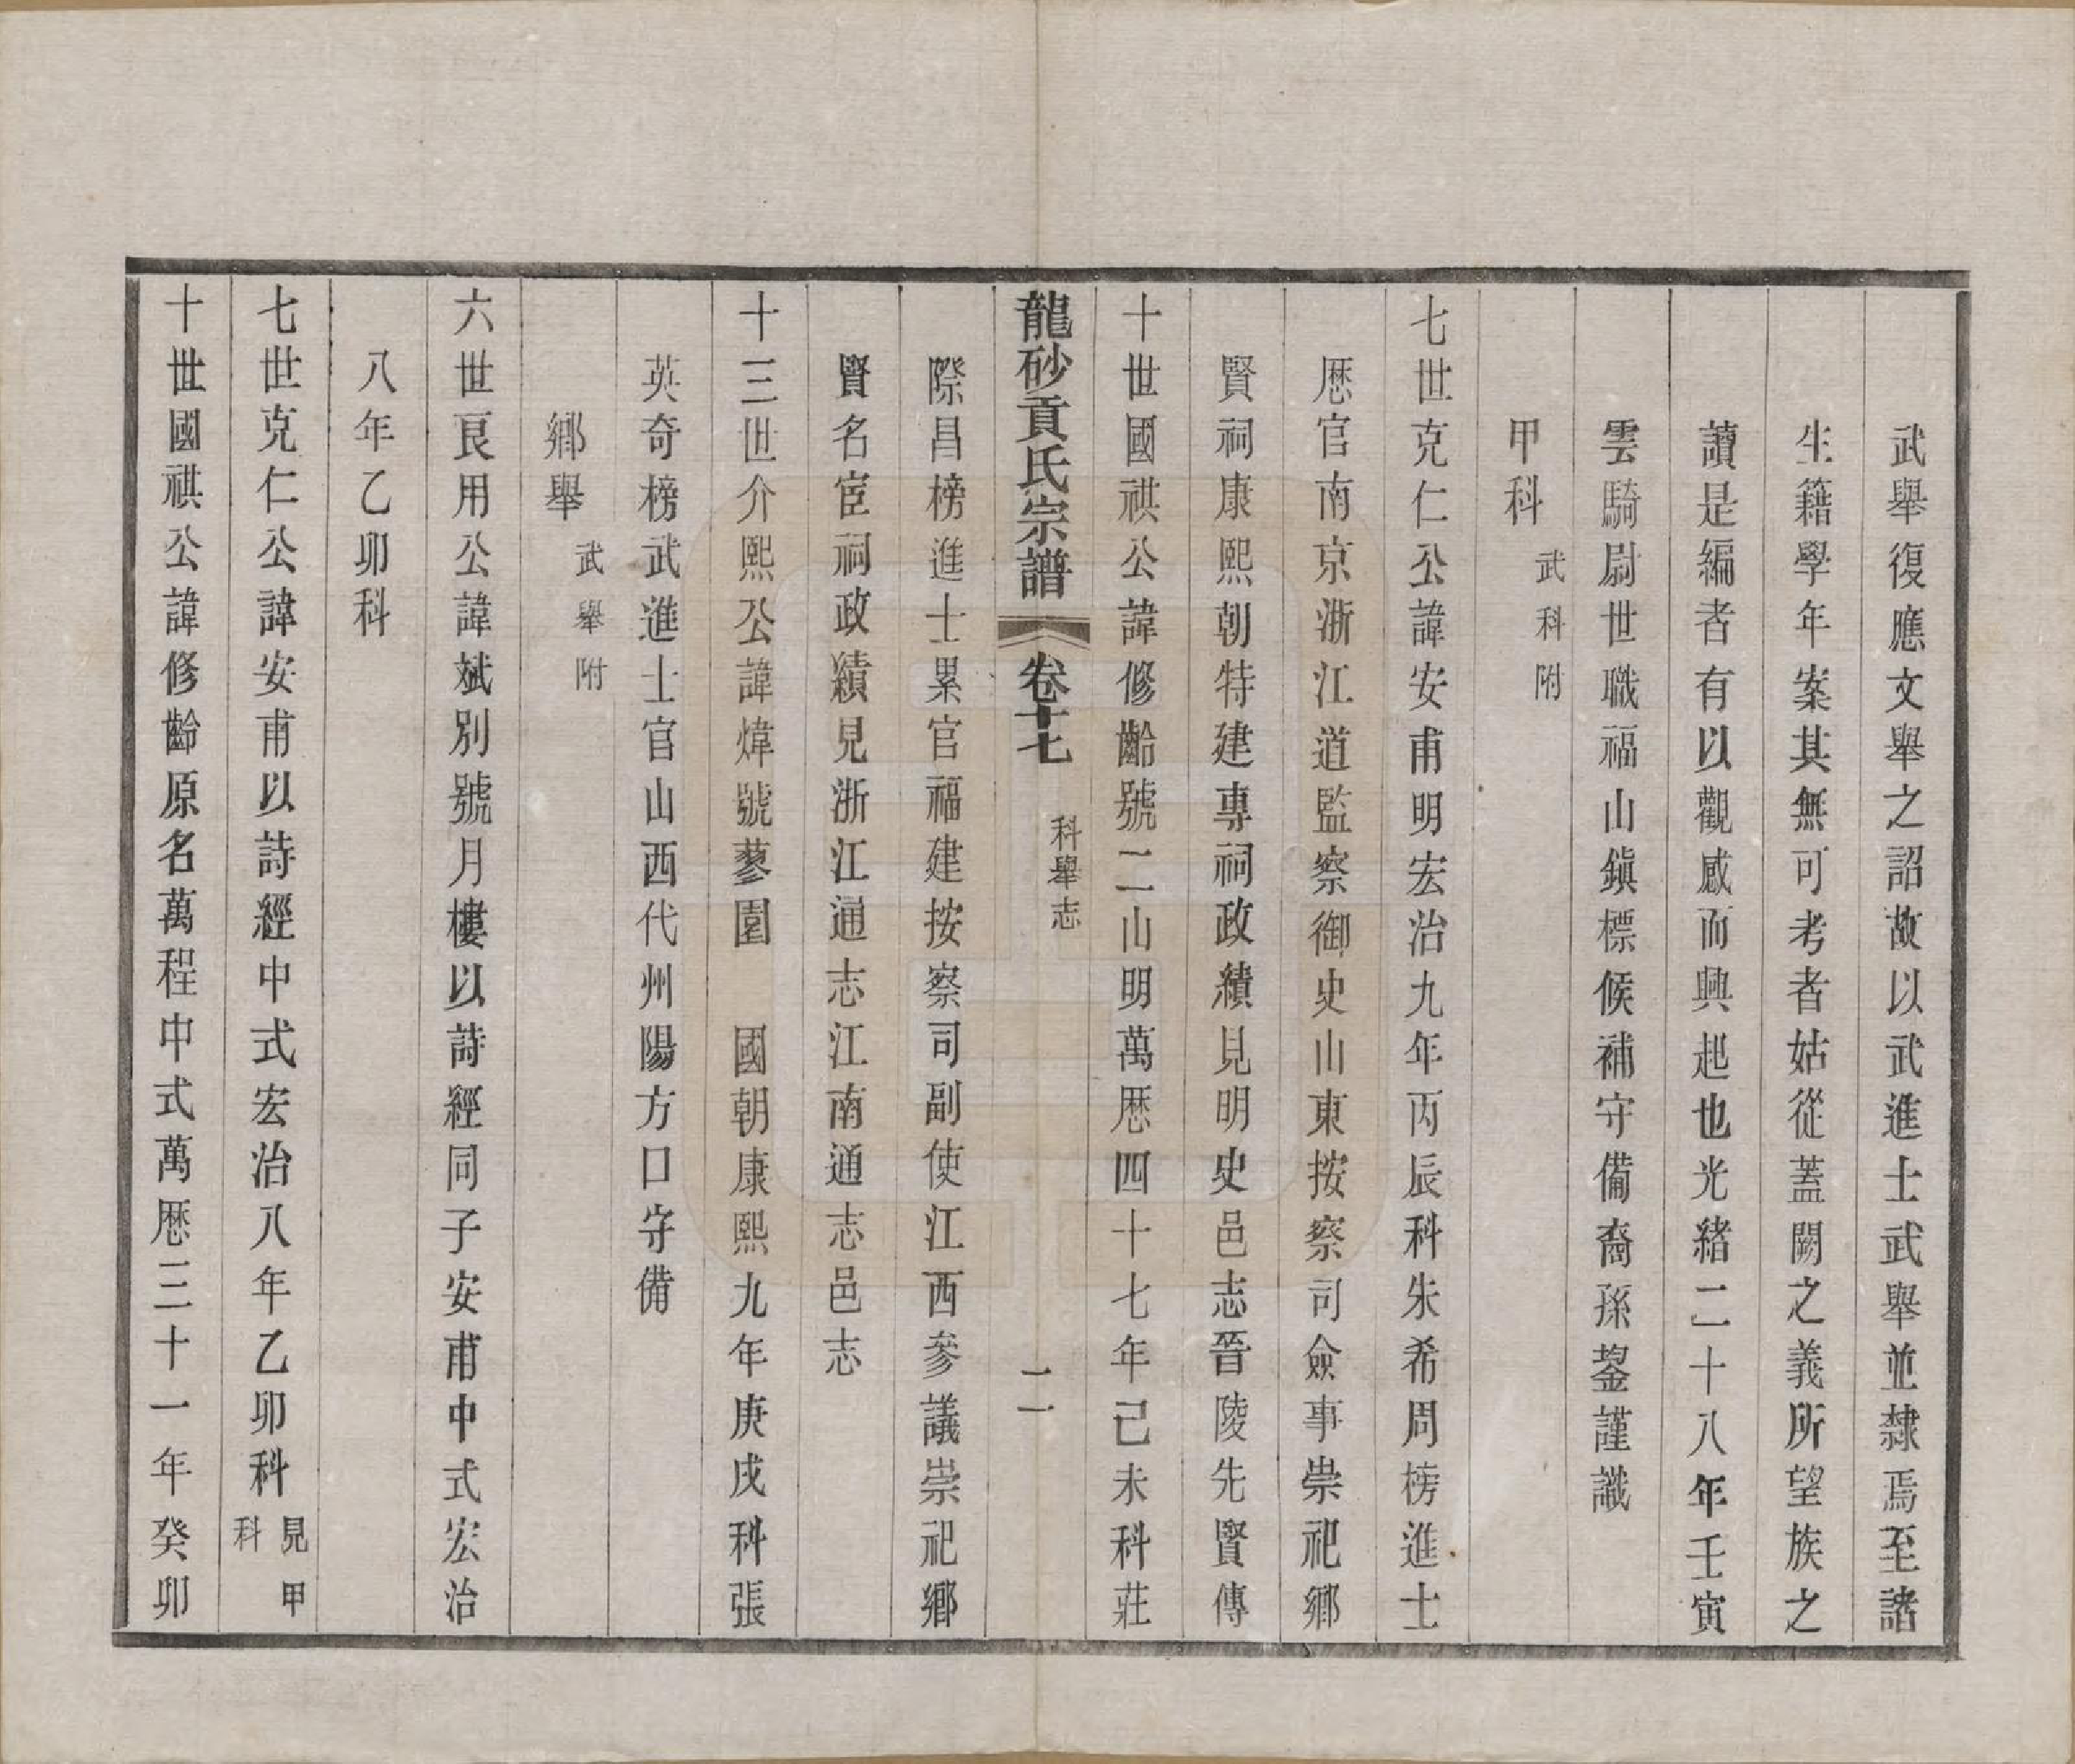 武舉復應文舉之詔故以武進士武舉並隸焉至諸
生籍學年案其無可考者姑從蓋闕之義所望族之
讀是編者有以觀感而興起也光緒二十八年壬寅
雲騎尉世職福山鎮標候補守備裔孫鋆謹識
甲科 武科附
七世克仁公諱安甫明宏治九年丙辰科朱希周榜進士
歷官南京浙江道監察御史山東按察司僉事崇祀鄉
賢祠康熙朝特建專祠政績見明史邑志晉陵先賢傳
十世國祺公諱修齡號二山明萬歷四十七年己未科莊
龍砂貢氏宗譜 卷十七 科舉志 二
際昌榜進士累官福建按察司副使江西參議崇祀鄉
賢名宦祠政績見浙江通志江南通志邑志
十三世介熙公諱煒號蓼園 國朝康熙九年庚戌科張
英奇榜武進士官山西代州陽方口守備
鄉舉 武舉附
六世艮用公諱斌別號月樓以詩經同子安甫中式宏治
八年乙卯科
七世克仁公諱安甫以詩經中式宏治八年乙卯科 見甲科
十世國祺公諱修齡原名萬程中式萬歷三十一年癸卯